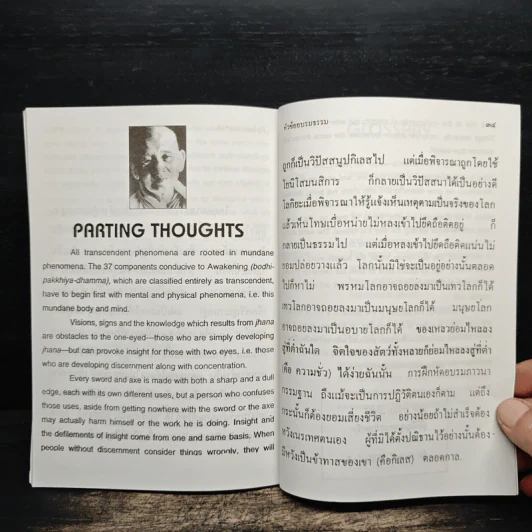 PARTING THOUGHTS
All transcendent phenomena are rooted in mundane
phenomena. The 37 components conducive to Awakening (bodhi-
pakkhiya-dhamma), which are classified entirely as transcendent,
have to begin first with mental and physical phenomena, i.e. this
mundane body and mind.
Visions, signs and the knowledge which results from jhana
are obstacles to the one-eyed—those who are simply developing
jhana—but can provoke insight for those with two eyes, i.e. those
who are developing discernment along with concentration.
Every sword and axe is made with both a sharp and a dull
edge, each with its own different uses, but a person who confuses
those uses, aside from getting nowhere with the sword or the axe
may actually harm himself or the work he is doing. Insight and
the defilements of insight come from one and same basis. When
people without discernment consider things wrongly, they will
หัวข้ออบรมธรรม ๓๔
ถูกก็เป็นวิปัสสนูปกิเลสไป แต่เมื่อพิจารณาถูกโดยใช้
โยนิโสมนสิการ ก็กลายเป็นวิปัสสนาได้เป็นอย่างดี
โลกียะเมื่อพิจารณาให้รู้แจ้งเห็นเหตุตามเป็นจริงของโลก
แล้วเห็นโทษเบื่อหน่ายไม่หลงเข้าไปยึดถือติดอยู่ ก็
กลายเป็นธรรมไป แต่เมื่อหลงเข้าไปยึดถือติดแน่นไม่
ยอมปล่อยวางแล้ว โลกนั้นมิใช่จะเป็นอยู่อย่างนั้นตลอด
ไปก็หาไม่ พรหมโลกอาจถอยลงมาเป็นเทวโลกก็ได้
เทวโลกอาจถอยลงมาเป็นมนุษยโลกก็ได้ มนุษยโลก
อาจถอยลงมาเป็นอบายโลกก็ได้ ของเหลวย่อมไหลลง
สู่ที่ต่ำฉันใด จิตใจของสัตว์ทั้งหลายก็ย่อมไหลลงสู่ที่ต่ำ
(คือ ความชั่ว) ได้ง่ายฉันนั้น การฝึกหัดอบรมภาวนา
กรรมฐาน ถึงแม้จะเป็นการปฏิวัติตนเองก็ตาม แต่ถึง
กระนั้นก็ต้องยอมเสี่ยงชีวิต อย่างน้อยถ้าไม่สำเร็จต้อง
หวังเนรเทศตนเอง ผู้ที่มิได้ตั้งปณิธานไว้อย่างนั้นต้อง-
มีหวังเป็นข้าทาสของเขา (คือกิเลส) ตลอดกาล.